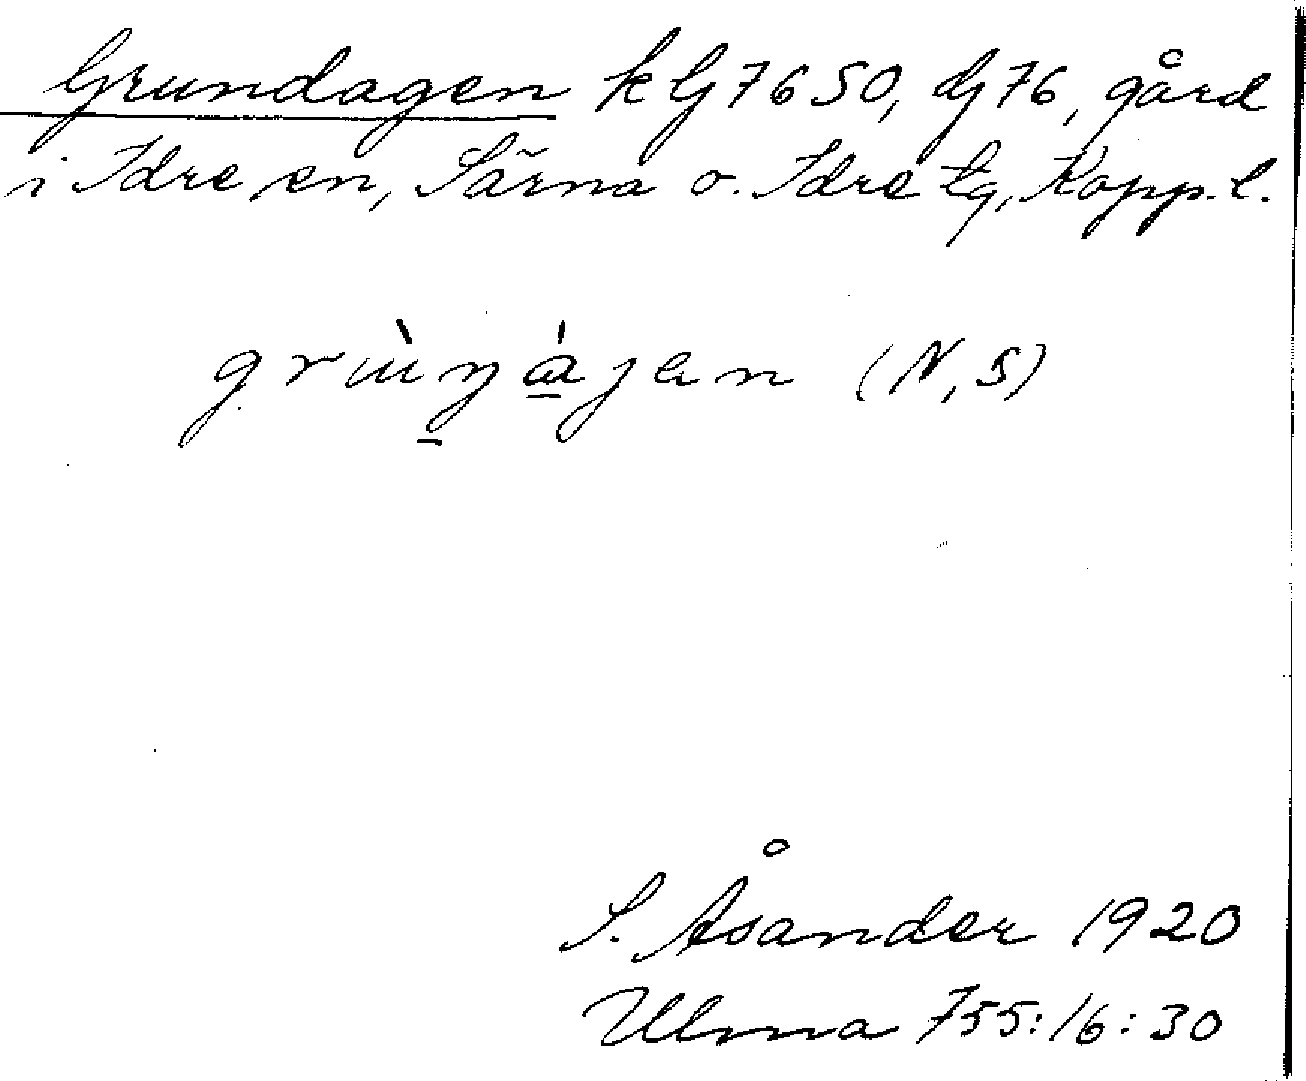 Grundagen kG7650, dG76, gård
i Idre sn, Särna o. Idre tg, Kopp. l.
(N, S)
S. Åsander 1920
Ulma 755:16:30